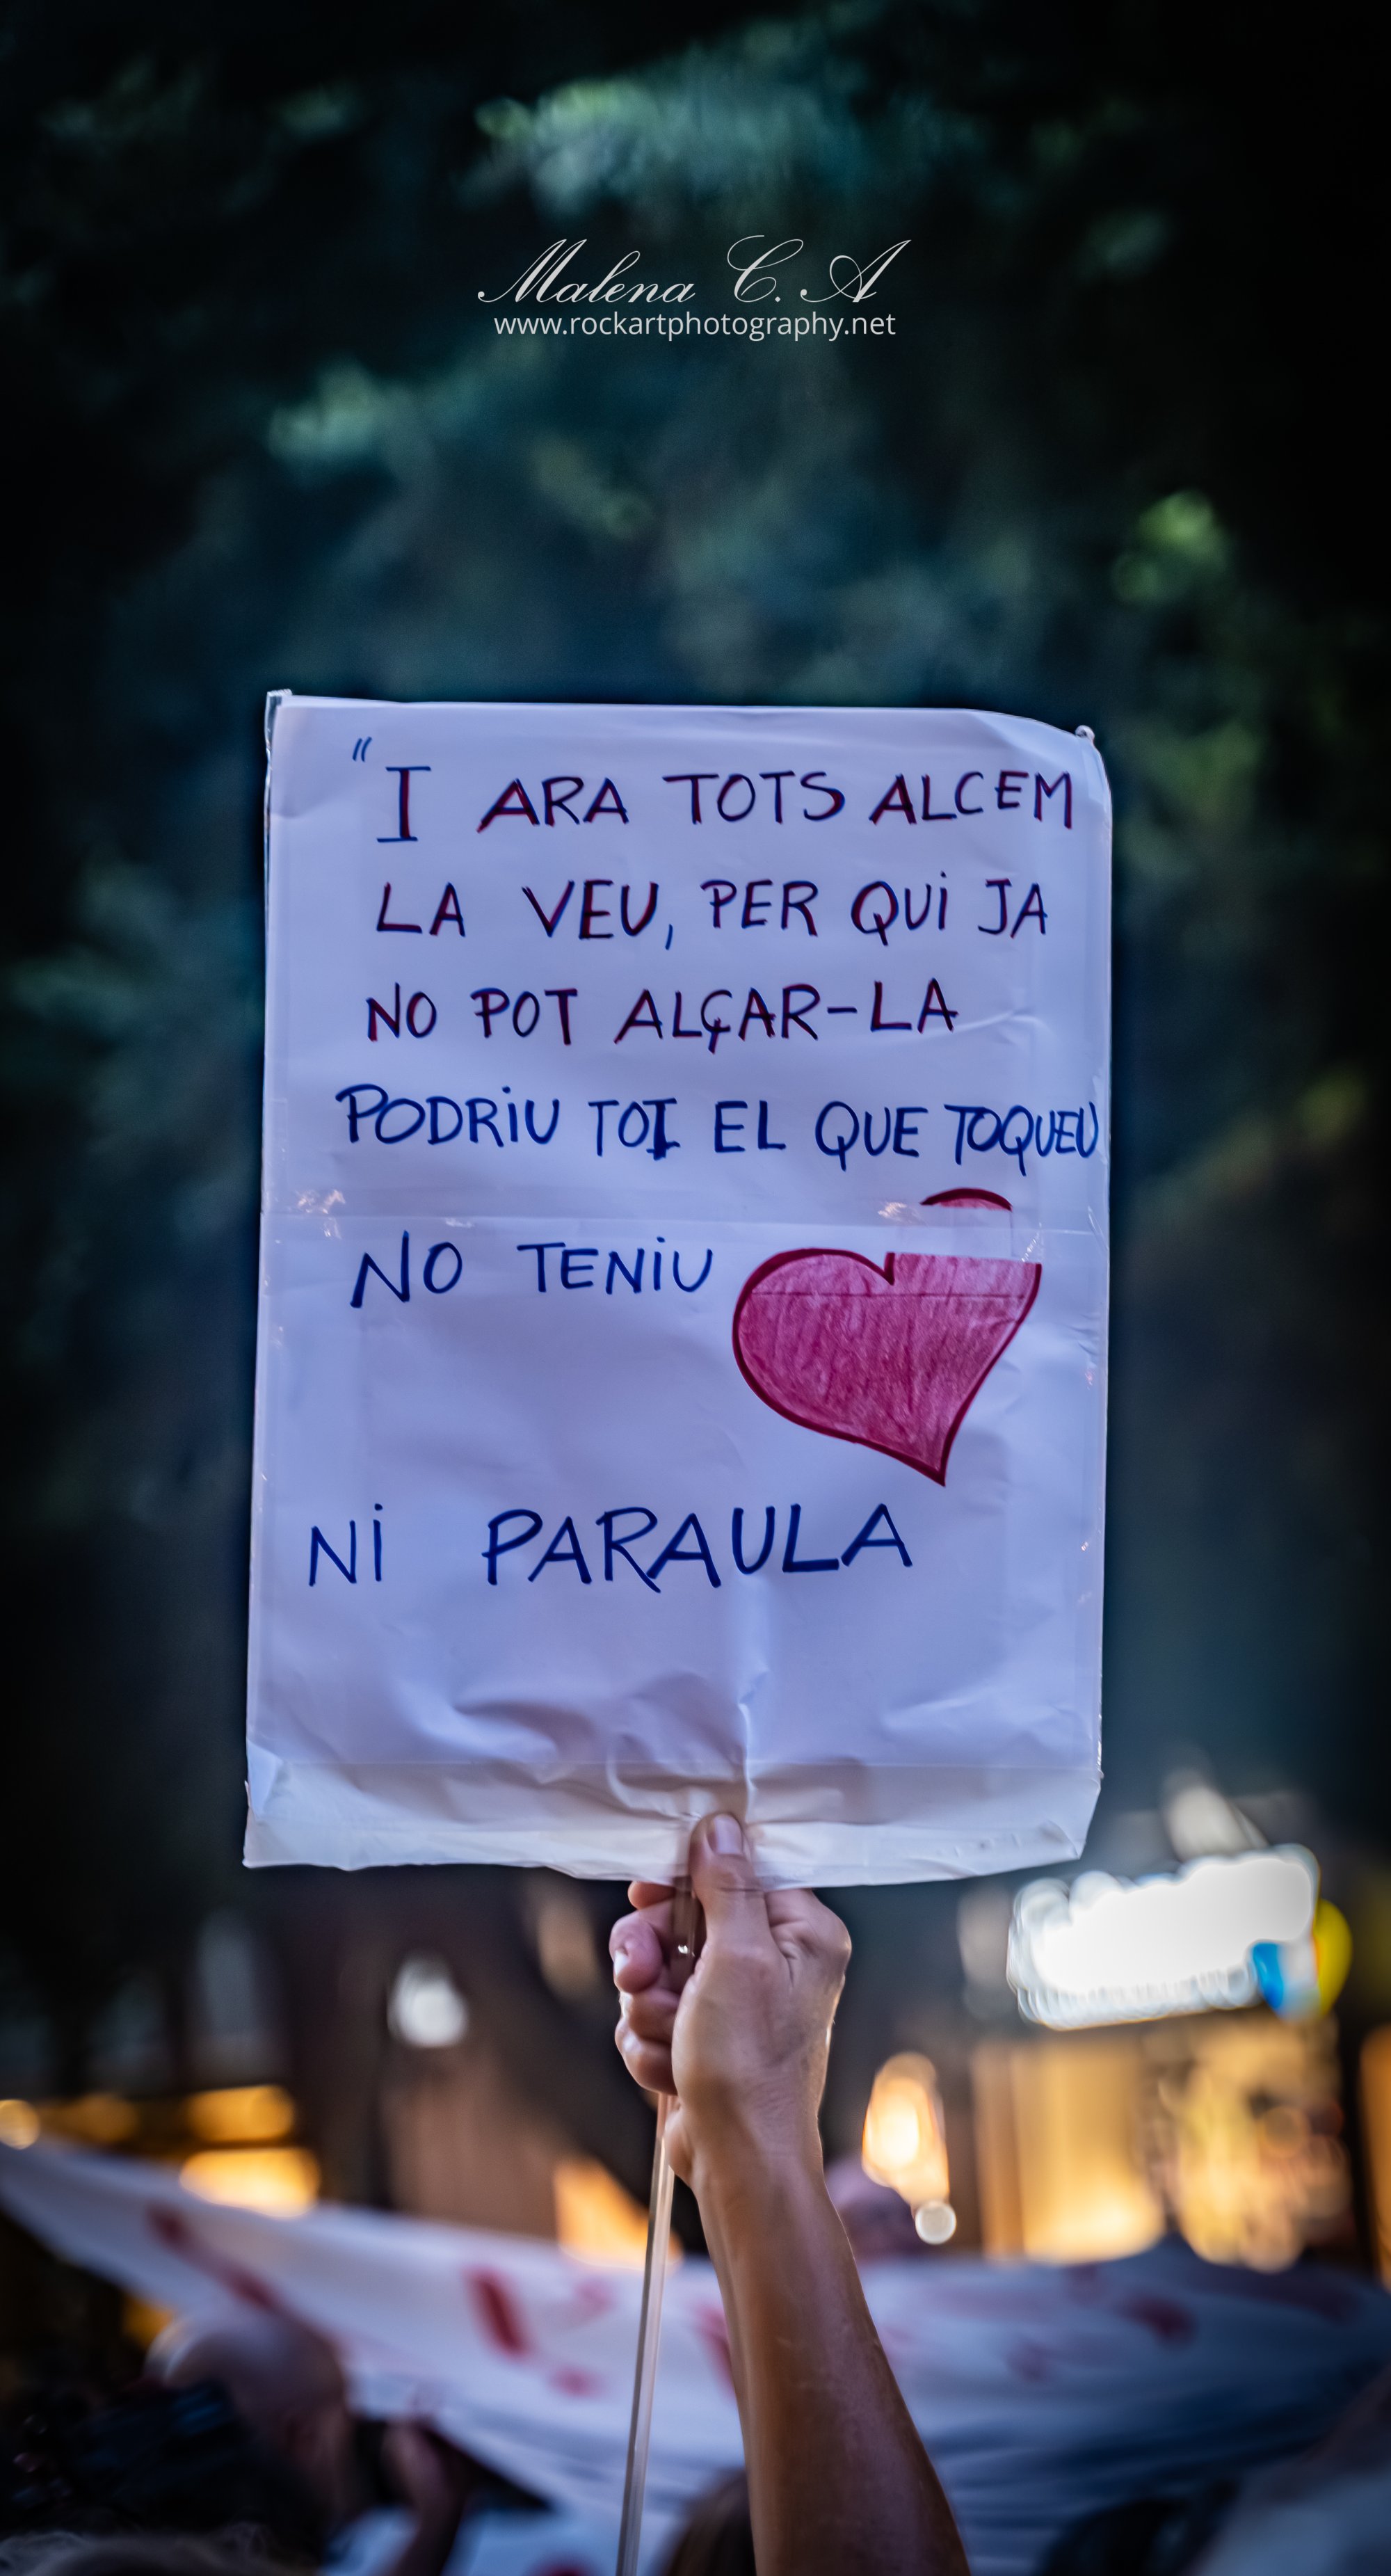 Malena C. A
www.rockartphotography.net
"I ARA TOTS ALCEM
LA VEU, PER QUI JA
NO POT ALÇAR-LA
PODRiU TOT EL QUE TOQUEU
NO TENiU
Ni PARAULA